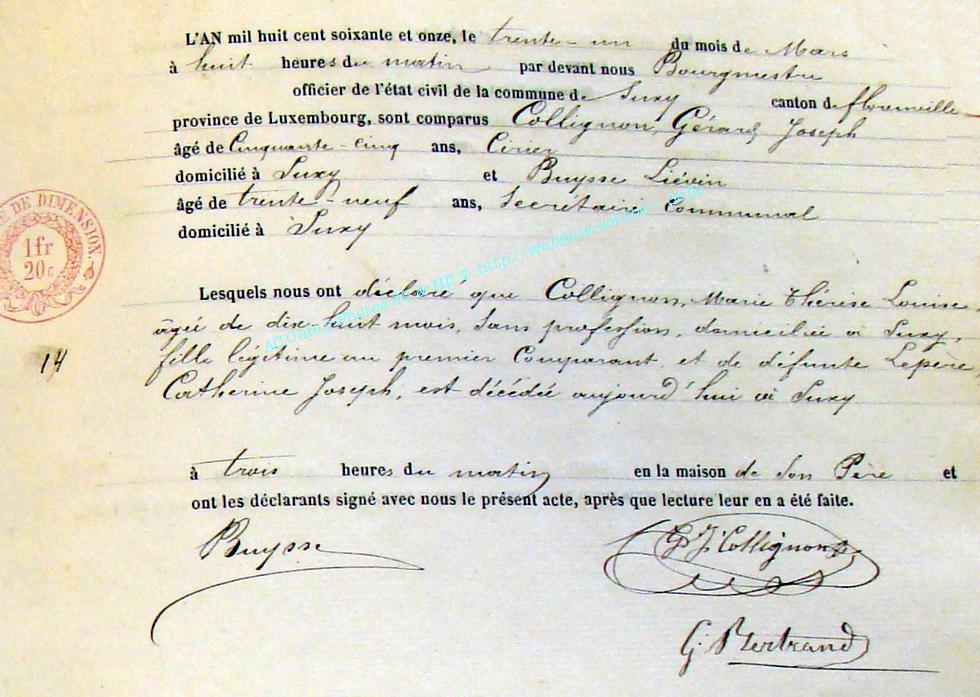 L'AN mil huit cent soixante et onze, le trente-un du mois de Mars
à huit heures du matin par devant nous Bourgmestre
officier de l'état civil de la commune de Suxy canton de florenville
province de Luxembourg, sont comparus Collignon, Gérard Joseph
âgé de Cinquante-cinq ans, Cirier
domicilié à Suxy et Buysse Liévin
âgé de trente-neuf ans, Secrétaire Communal
domicilié à Suxy
DE DIMENSION.
1 fr
20 c
Lesquels nous ont déclaré que Collignon, Marie Thérèse Louise
âgée de dix huit mois, sans profession, domiciliée à Suxy,
fille légitime du premier Comparant et de défunte Lepère,
14
Catherine Joseph, est décédée aujourd'hui à Suxy
à trois heures du matin en la maison de son Père et
ont les déclarants signé avec nous le présent acte, après que lecture leur en a été faite.
Buysse
G J Collignon
G. Bertrand